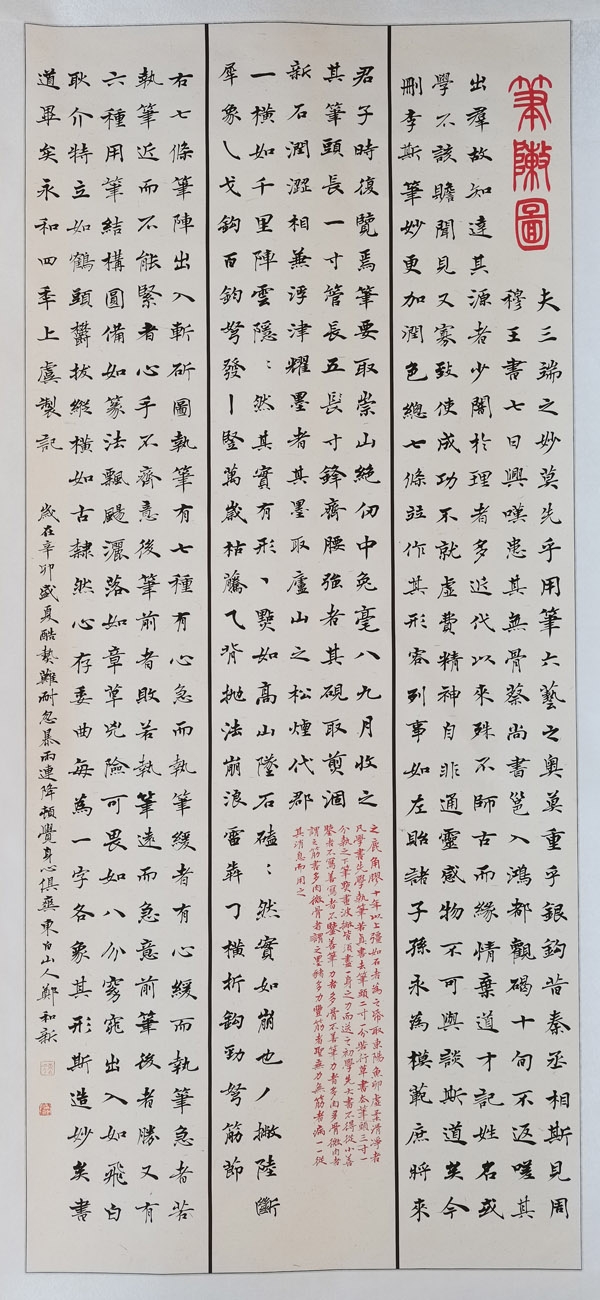 筆陣圖
夫三端之妙莫先乎用筆六藝之奥莫重乎銀鈎昔秦丞相斯見周
穆王書七日興嘆患其無骨蔡尚書邕入鴻都觀碣十旬不返嗟其
出羣故知達其源者少闇於理者多近代以來殊不師古而緣情棄道才記姓名或
學不該贍聞見又寡致使成功不就虚費精神自非通靈感物不可與談斯道矣今
刪李斯筆妙更加潤色總七條竝作其形容列事如左貽諸子孫永為模範庶將來
君子時復覽焉筆要取崇山絶仞中兔毫八九月收之
其筆頭長一寸管長五長寸鋒齊腰強者其硯取煎涸
新石潤澀相兼浮津耀墨者其墨取廬山之松煙代郡
之鹿角膠十年以上強如石者為之紙取東陽魚卵虛柔滑淨者
凡學書先學執筆若真書去筆頭二寸一分若行草書去筆頭三寸一
分執之下筆點畫波撇皆須盡一身之力而送之初學先大書不得從小善
鑒者不寫善寫者不鑒善筆力者多骨不善筆力者多肉多骨微肉者
謂之筋書多肉微骨者謂之墨豬多力豐筋者聖無力無筋者病一一從
其消息而用之
一橫如千里陣雲隱〻然其實有形丶點如高山墜石磕〻然實如崩也丿撇陸斷
犀象乀戈鈎百鈞弩發丨豎萬歲枯藤乁背拋法崩浪雷犇㇆橫折鈎勁弩筋節
右七條筆陣出入斬斫圖執筆有七種有心急而執筆緩者有心緩而執筆急者若
執筆近而不能緊者心手不齊意後筆前者敗若執筆遠而急意前筆後者勝又有
六種用筆結構圓備如篆法飄颺灑落如章草兇險可畏如八分窈窕出入如飛白
耿介特立如鶴頭鬱拔縱橫如古隸然心存委曲每為一字各象其形斯造妙矣書
道畢矣永和四年上虞製記
歲在辛卯盛夏酷熱難耐忽暴雨連降頓覺身心俱爽東白山人鄭和新